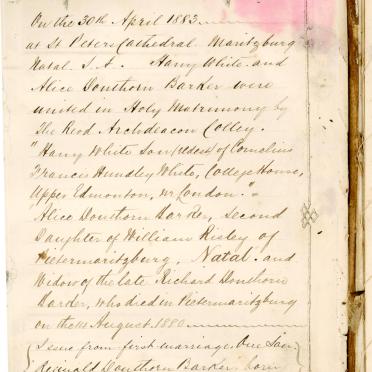 On the 30th April 1883
at St Peters Cathedral Maritzburg
Natal S.A. Harry White and
Alice Douthorn Barker were
united in Holy Matrimony by
The Revd. Archdeacon Colley.
"Harry White Son (Eldest) of Cornelius
Francis Hundley White, College House,
Upper Edmonton, nr London."
Alice Douthorn Barker, Second
Daughter of William Risley of
Pietermaritzburg, Natal. and
Widow of the late Richard Douthorn
Barker, who died in Pietermaritzburg
on the August 1880
Issue from first marriage One Son
Reginald Douthorn Barker, born